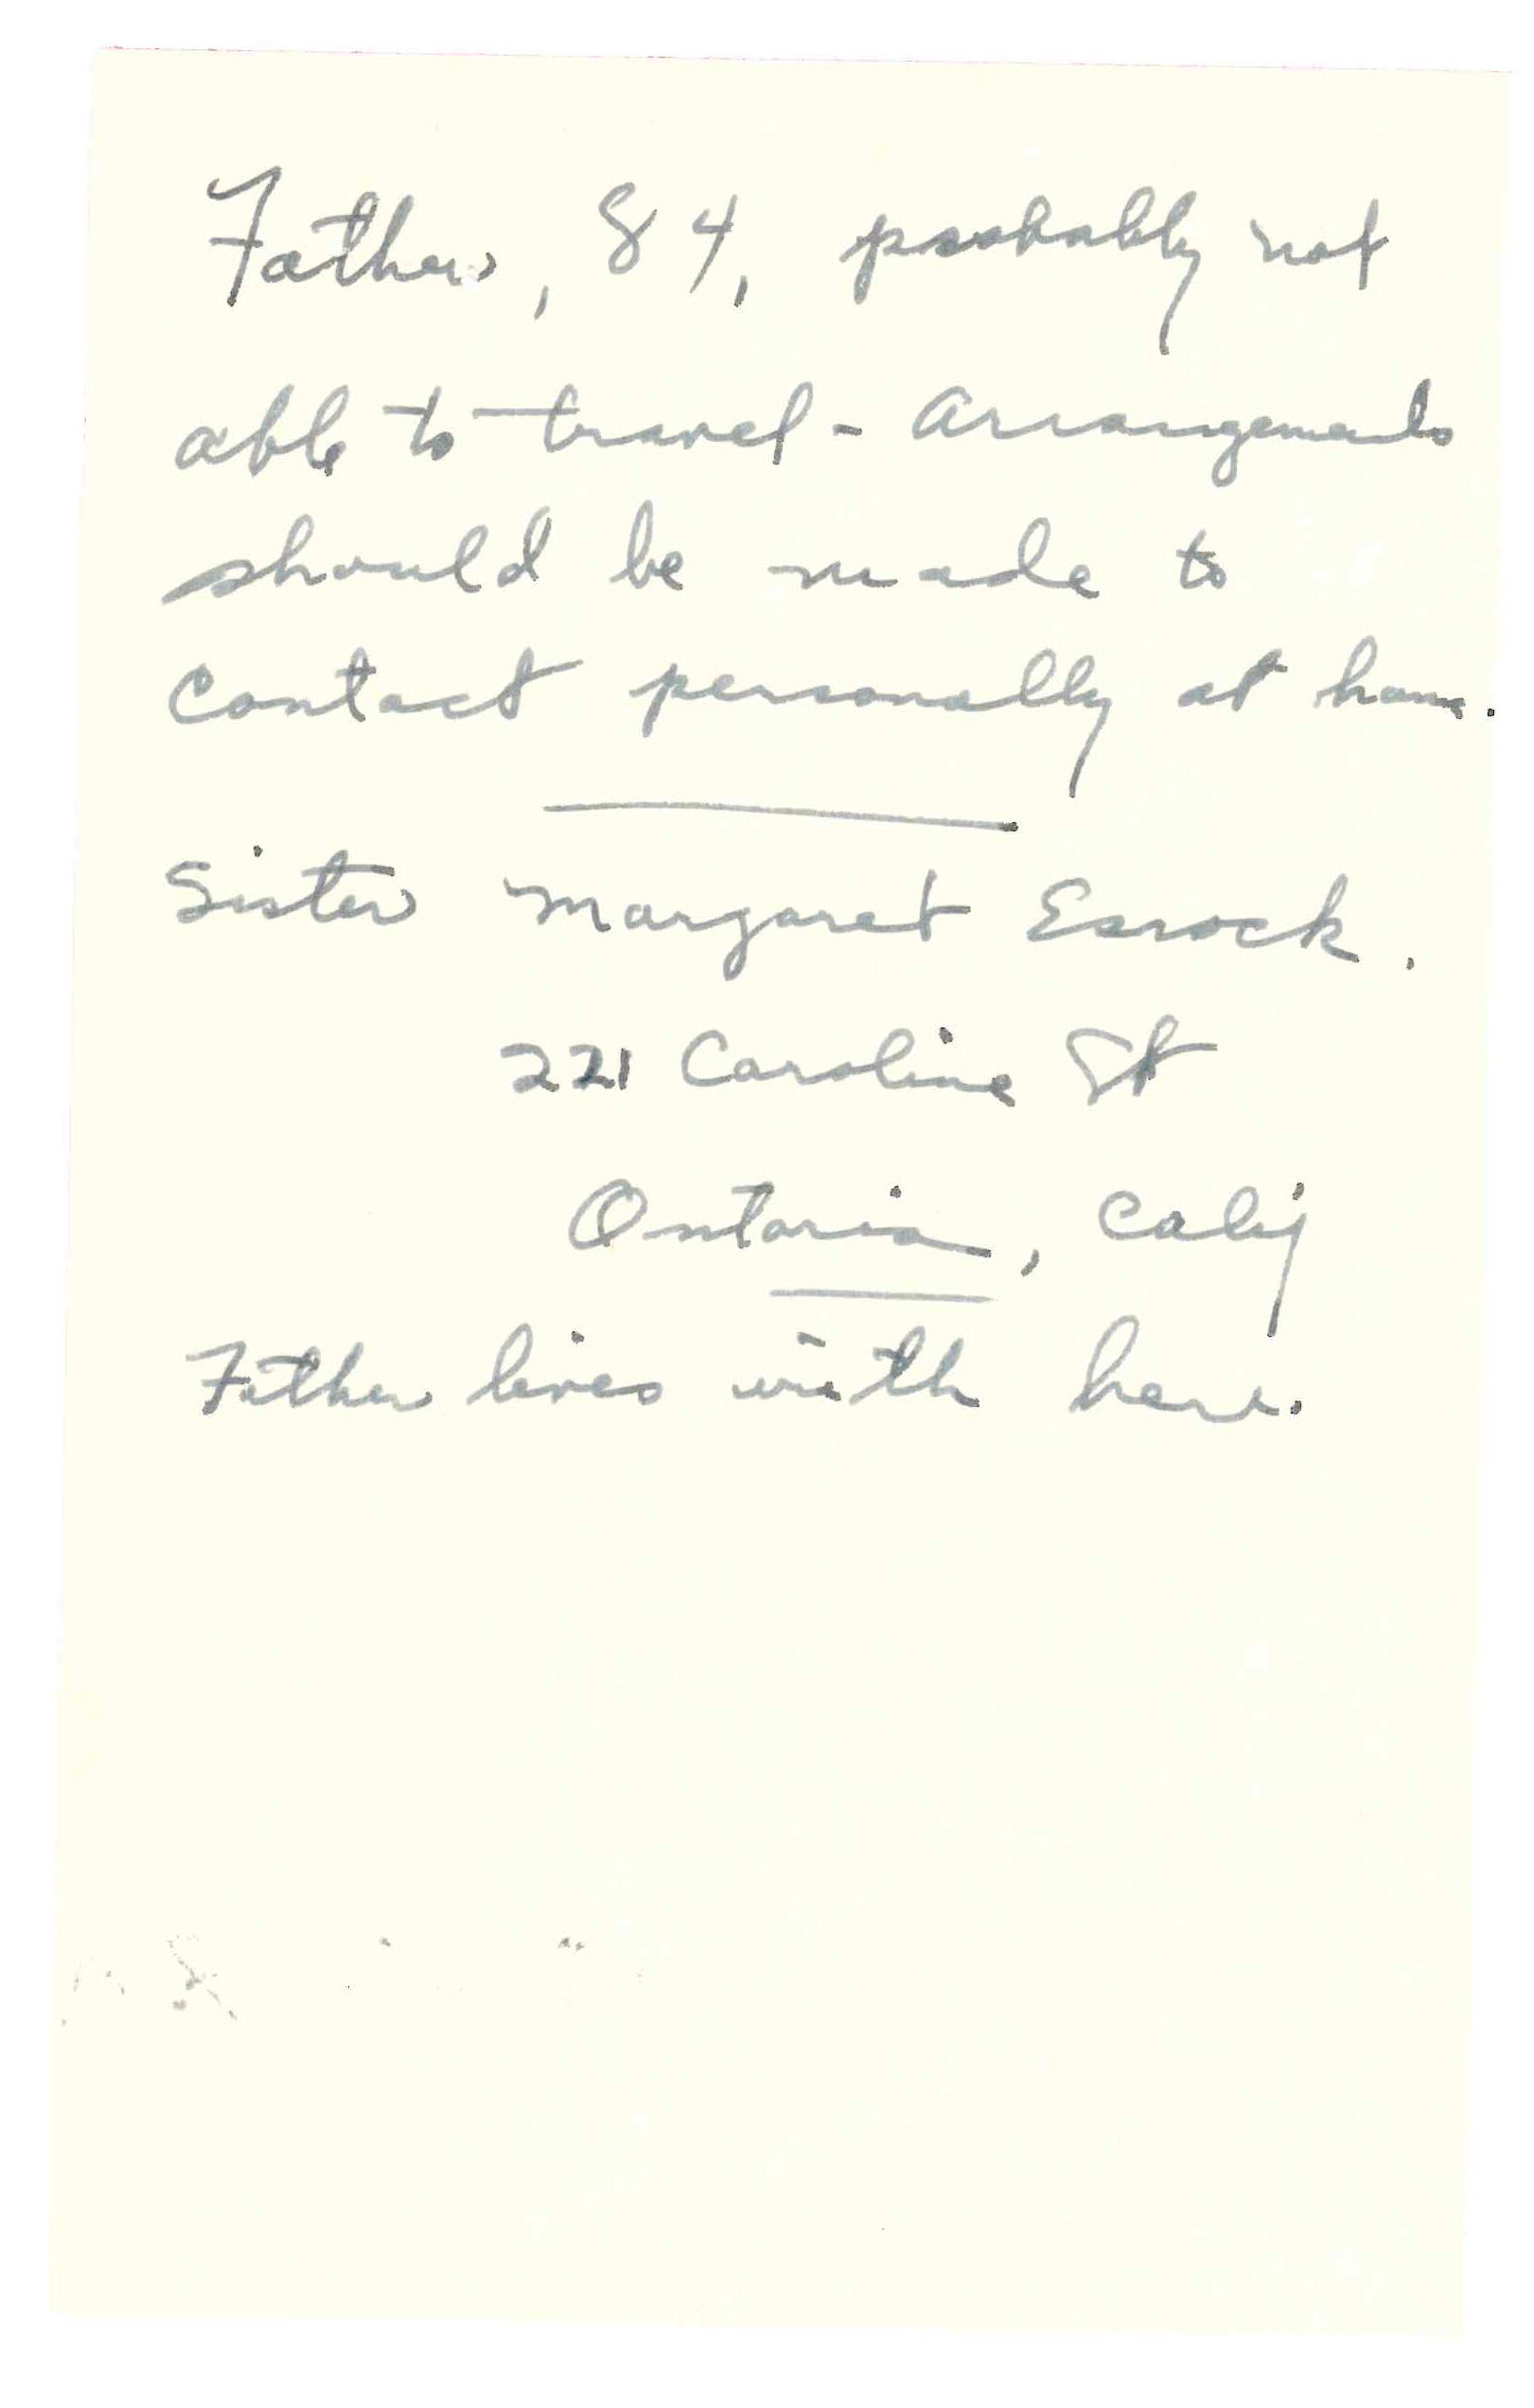 Father, 84, probably not
able to travel - Arrangements
should be made to
contact personally at home.
Sister Margaret Esrock.
221 Caroline St
Ontario, Calif
Father lives with here.